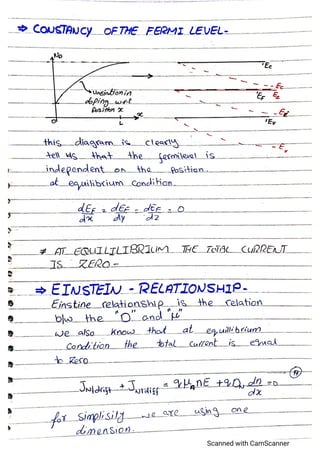 ⇒ CONSTANCY OF THE FERMI LEVEL-
ND
Ec
Variation in
doping w.r.t
Position x
x
O
L
Ec
EF
Ei
EF
Ev
Ev
this diagram is clearly
tell us that the fermilevel is
independent on the Position.
at equilibrium Condition.
dEF/dx = dEF/dy = dEF/dz = 0
* AT EQUILILIBRIUM THE TOTAL CURRENT
IS ZERO-
⇒ EINSTEIN - RELATIONSHIP-
Einstine relationship is the relation
b/w the "D" and "μ"
we also know that at equilibrium
Condition the total current is equal
to Zero
JN|drift + JN|diff = qμnnE + qDn dn/dx = 0
for Simplisity we are using one
dimension.
Scanned with CamScanner